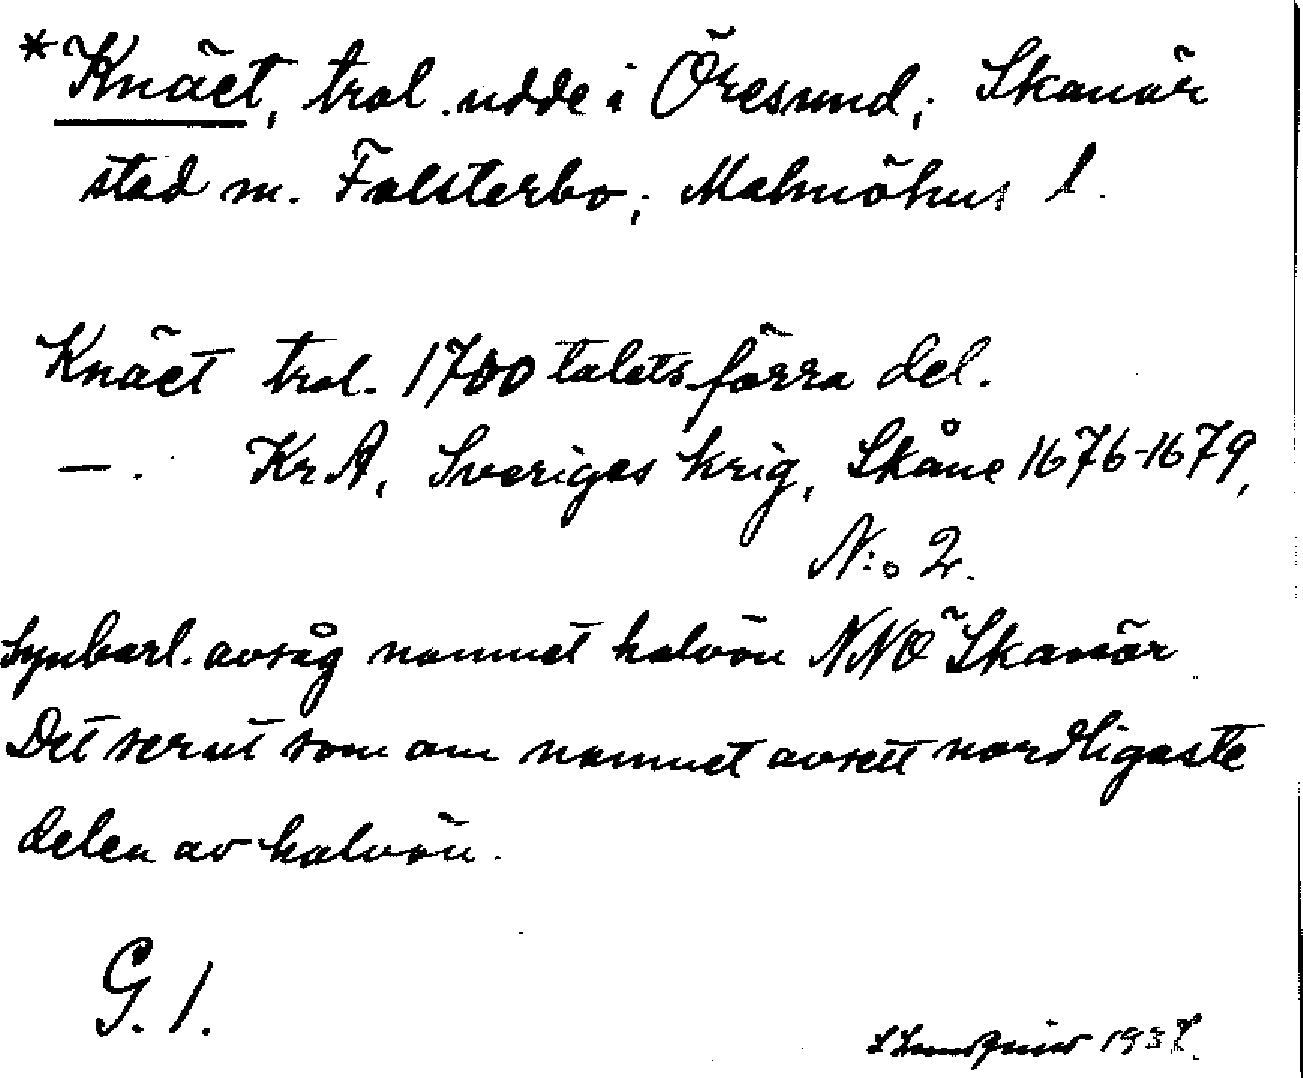 *Knäet, trol. udde i Öresund; Skanör
stad m. Falsterbo; Malmöhus l.
Knäet trol. 1700 talets förra del.
— . KrA, Sveriges krig, Skåne 1676-1679,
N:o 2.
Synbarl. avsåg namnet halvön NNO Skanör
Det ser ut som om namnet avsett nordligaste
delen av halvön.
G. 1.